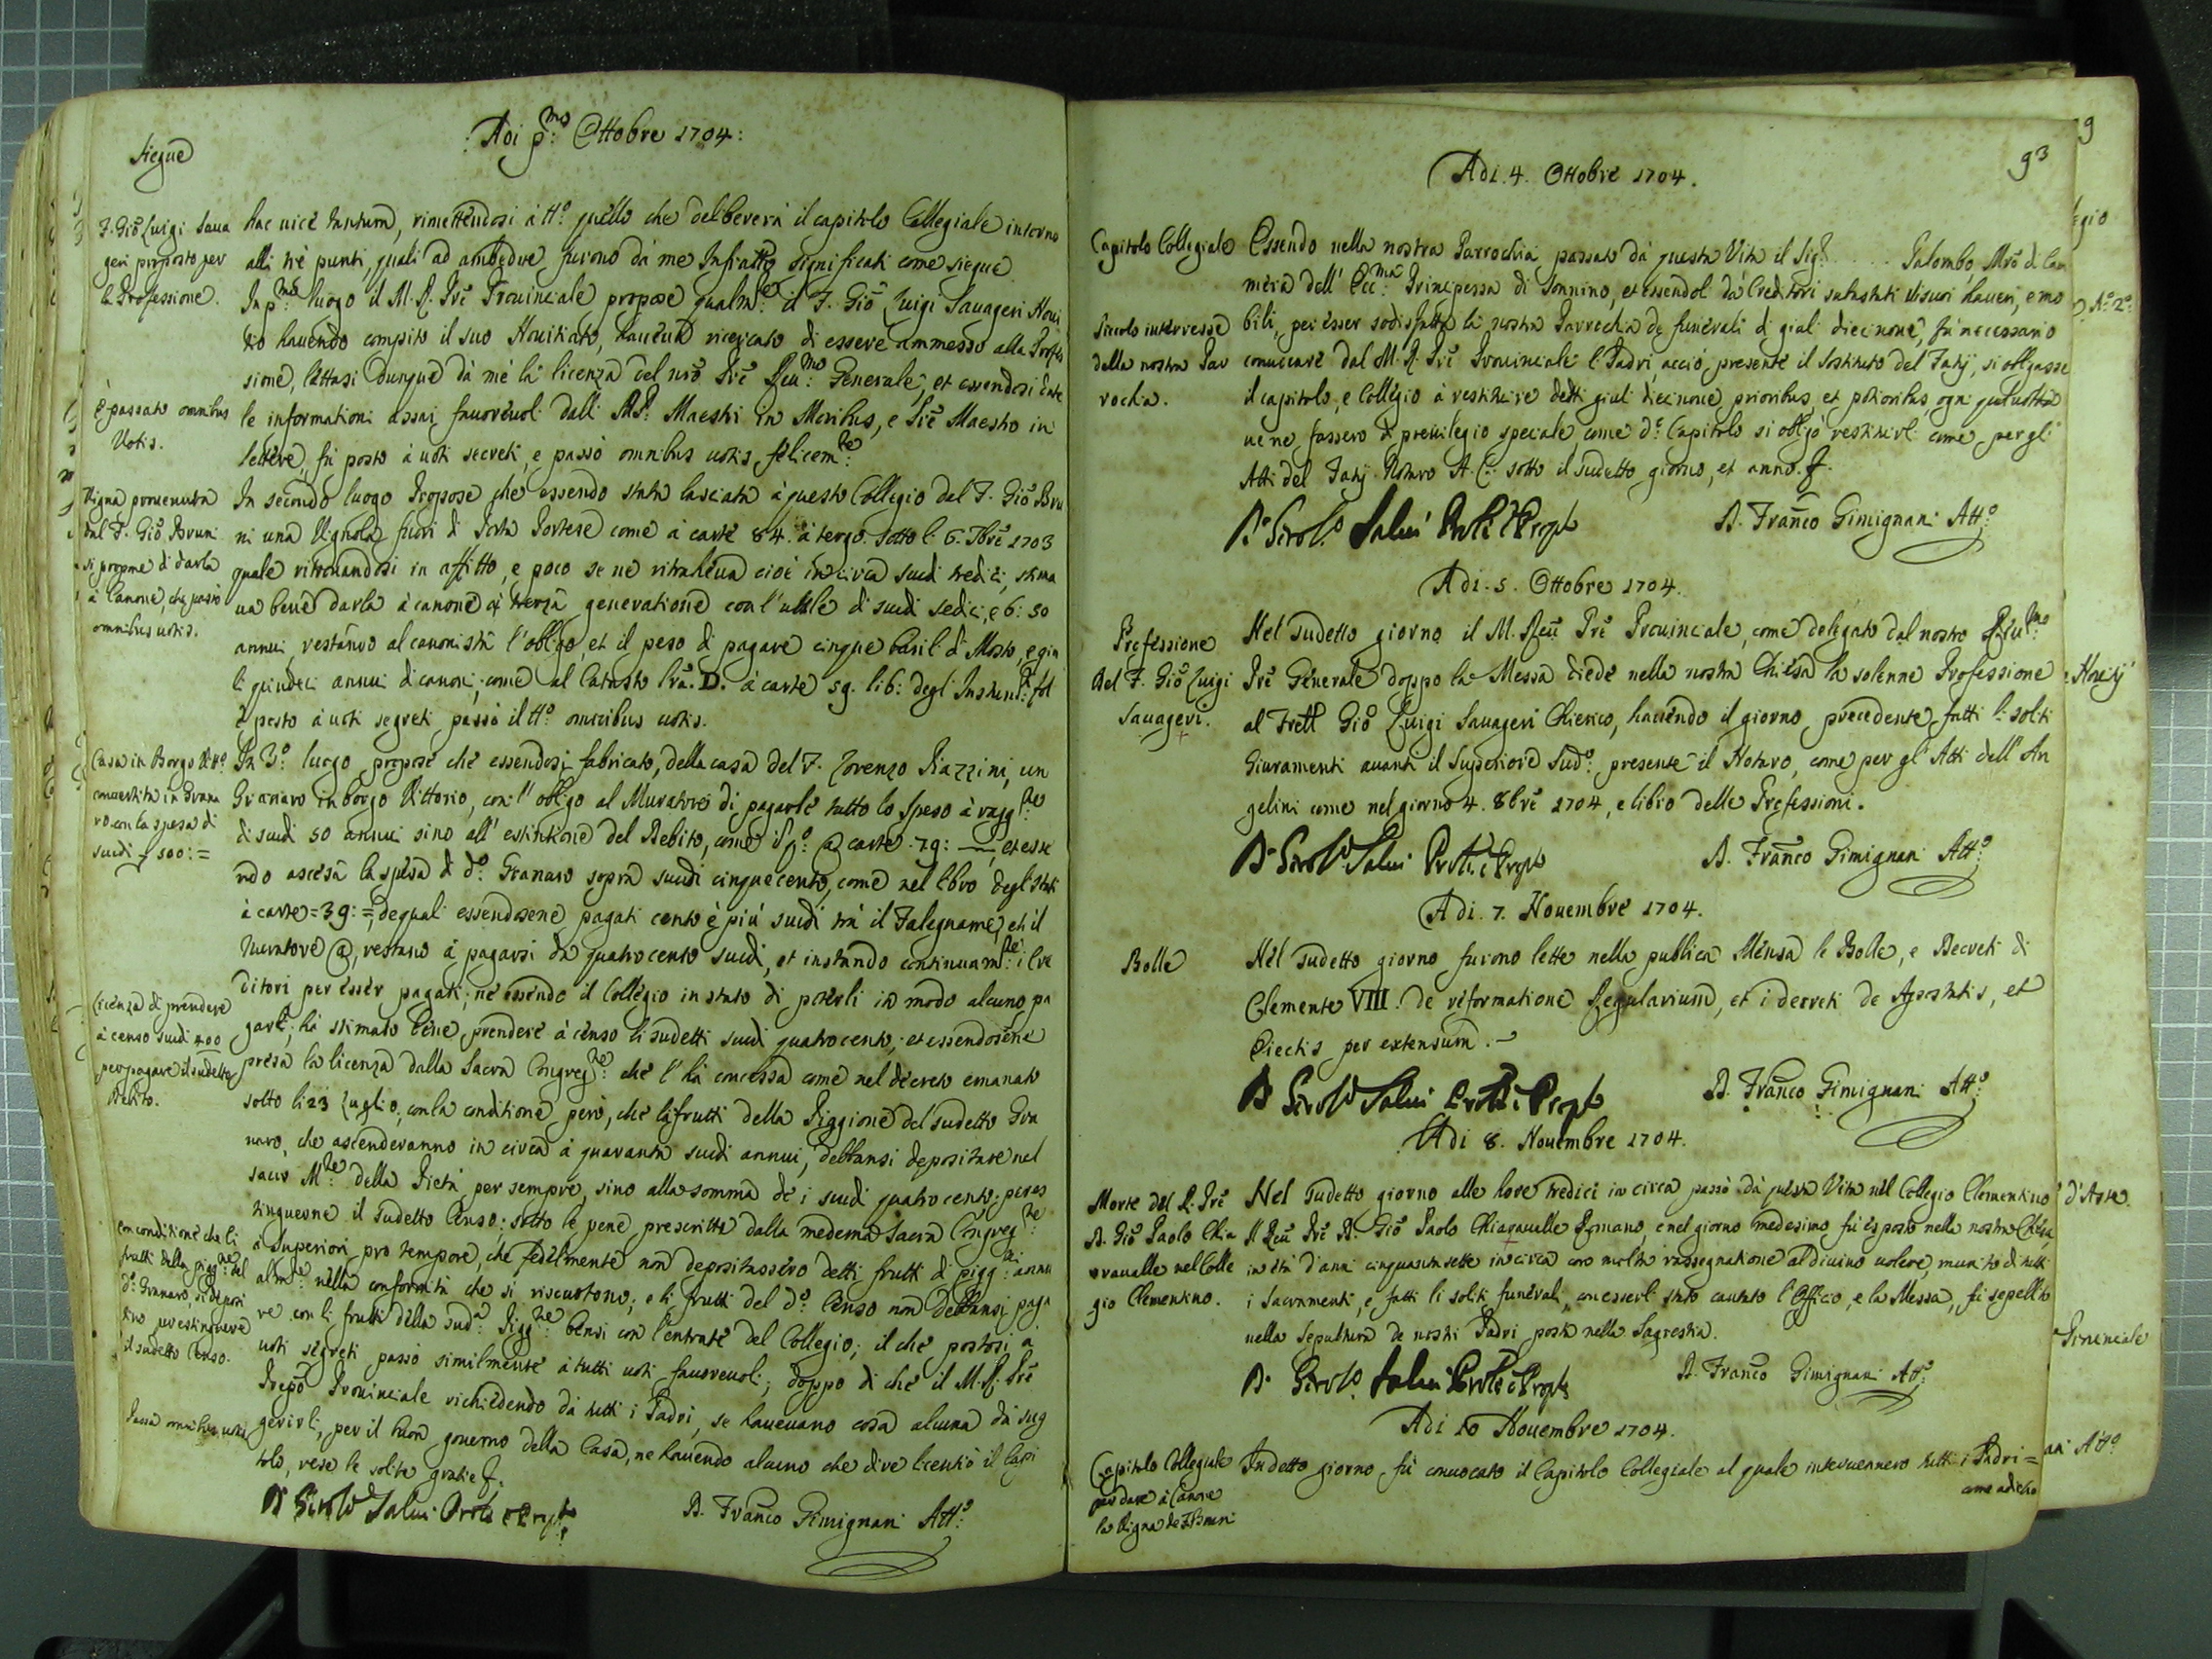 Siegue
Adi p:mo Ottobre 1704:
F. Gio Luigi Saua
geri proposto per
la Professione.
hac uice tantum, rimettendosi à tt.o quello che delibererà il capitolo Collegiale intorno
alli trè punti, quali ad ambedue furono dà me Infratto significati come siegue
In p:mo luogo il M. R. Pre Prouinciale propose qualm:te il F. Gio Luigi Sauageri Noui
tio hauendo compito il suo Nouitiato, hauéua ricercato di essere ammesso alla Profes
sione, lettasi dunque dà mè la licenza del nro Pre Reu:mo Generale, et essendosi hute
è passato omnibus
Votis.
le informationi assai fauoreuoli dalli RR. PP. Maestri in Moribus, e Pre Maestro in
lettere, fù posto à uoti secreti, e passò omnibus uotis felicem:te
Vigna prouenuta
dal F. Gio Bruni
si propone di darla
à Canone, che passò
omnibus uotis.
In secondo luogo Propose che essendo stata lasciata à questo Collegio dal F. Gio Bru
ni una Vignola fuori di Porta Portese come à carte 84. à tergo. sotto li 6. 7bre 1703
quale ritrouandosi in affitto, e poco se ne ritrahéua cioè in circa scudi tredici, stima
ua bene darla à canone à terza generatione con l'utile di scudi sedici, e b: 50
annui, restando al canonista l'obligo, et il peso di pagare cinque barili di Mosto, e giu
li quindeci annui di canoni; come al Catasto lra. D. à carte 59. lib: degl Instrum:ti
è posto à uoti segreti passò il tt.o omnibus uotis.
Casa in Borgo Vitt.o
conuertita in Grana
ro con la spesa di
scudi 500:=
In 3.o luogo propose che essendosi fabricato, della casa del F. Lorenzo Piazzini, un
Granaro in borgo Vittorio, con l'obligo al Muratore di pagarle tutto lo speso à ragg:ne
di scudi 50 annui sino all'estintione del Debito, come @ carte .79: — et esse
ndo ascesa la spesa di d.o Granaro sopra scudi cinquecento, come nel libro degl'Stati
à carte=39:=, de quali essendosene pagati cento è più scudi trà il Falegname, et il
Muratore @, restano à pagarsi da quatrocento scudi, et instando continuam:te i Cre
Licenza di prendere
à censo scudi 400
per pagare il sudetto
Debito.
ditori per esser pagati; nè essendo il Collegio in stato di poterli in modo alcuno pa
garli; hà stimato bene prendere à censo li sudetti scudi quatrocento, et essendosene
presa la licenza dalla Sacra Congreg:ne che l'hà concessa come nel decreto emanato
sotto li 23 Luglio, con la conditione però, che li frutti della Piggione del sudetto Gra
naro, che ascenderanno in circa à quaranta scudi annui, debbansi depositare nel
sacro M:te della Pietà per sempre, sino alla somma de i scudi quatrocento, per es
tinguerne il sudetto Censo; sotto le pene prescritte dalla medema Sacra Congreg:ne
con conditione che li
frutti della pigg:ne del
d.o Granaro, si deposi
tino per estinguere
il sudetto Censo.
à Superiori pro tempore, che fedelmente non depositassero detti frutti di pigg:ni annu
alm:te nella conformità che si riscuotono; e li frutti del d.o Censo non debbansi paga
re con li frutti della sud.a Pigg:ne bensi con l'entrate del Collegio; il che postosi a
uoti segreti passò similmente à tutti uoti fauoreuoli; doppo di che il M. R. Pre
Prepo Prouinciale richiedendo dà tutti i Padri, se haueuano cosa alcuna dà sug
Passa omnibus uotis
gerirli, per il buon gouerno della Casa, ne hauendo alcuno che dire licentiò il Capi
tolo, rese le solite gratie
D. Girol.o Salui Prole è Prepto
D. Franco Gimignani Att.o
93
Adi. 4. Ottobre 1704.
Capitolo Collegiale
Essendo nella nostra Parrochia passato dà questa Vita il Sig.r .... Palombo, Mro di Ca
mera dell' Ecc:ma Principessa di Sonnino, et essendoli dà Creditori subastati i suoi haueri, e mo
Piccolo interresse
della nostra Par
rochia.
bili, per esser sodisfatta la nostra Parrochia de funerali di giuli diecinoue, fù necessario
conuocare dal M. R. Pre Prouinciale li Padri, acciò presente il Sostituto del Fatij, si obligasse
il capitolo, e Collegio à restituire detti giuli diecinoue prioribus, et potioribus, ogni qualuolta
ue ne fossero di preuilegio speciale, come d.o Capitolo si obligò restituirli come per gli
Atti del Fatij Notaro A. C. sotto il sudetto giorno, et anno.
D. Girol.o Salui Prole è Prepto
D. Franco Gimignani Att.o
Adi. 5. Ottobre 1704.
Professione
Del F. Gio Luigi
Sauageri.
Nel sudetto giorno il M. Reu Pre Prouinciale, come delegato dal nostro Reu:mo
Pre Generale doppo la Messa diede nella nostra Chiesa la solenne Professione
al Fratl Gio Luigi Sauageri Chierico, hauendo il giorno precedente fatti li soliti
Giuramenti auanti il Superiore Sud.o presente il Notaro, come per gl'Atti dell'An
gelini come nel giorno 4. 8bre 1704, e libro delle Professioni.
D. Girol.o Salui Prole è Prepto
D. Franco Gimignani Att.o
Adi. 7. Nouembre 1704.
Bolle
Nel sudetto giorno furono lette nella publica Mensa le Bolle, e Decreti di
Clemente VIII. de reformatione Regularium, et i decreti de Apostatis, et
Eiectis per extensum.
D. Girol.o Salui Prole è Prepto
D. Franco Gimignani Att.o
Adi 8. Nouembre 1704.
Morte del R. Pre
D. Gio Paolo Chia
raualle nel Colle
gio Clementino.
Nel sudetto giorno alle hore tredici in circa passò dà questa Vita nel Collegio Clementino
Il Reu Pre D. Gio Paolo Chiarauelle Romano, e nel giorno medesimo fù esposto nella nostra Chiesa
in età d'anni cinquantasette in circa con molta rassegnatione al diuino uolere, munito di tutti
i Sacramenti, e fatti li soliti funerali, con esserli stato cantato l'Officio, e la Messa, fù sepellito
nella Sepultura de nostri Padri posta nella Sagrestia.
D. Girol.o Salui Prole è Prepto
D. Franco Gimignani Att.o
Adi 10 Nouembre 1704.
Capitolo Collegiale
per dare à Canone
la Vigna de F. Bruni
In detto giorno fù conuocato il Capitolo Collegiale al quale interuennero tutti i Padri=
come adietro